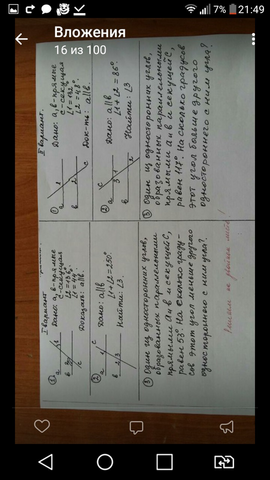 21:49
Вложения
16 из 100
I вариант.
① Дано: a, b - прямые
c - секущая
Доказать: a||b.
② Дано: a||b
∠1+∠2=250°
Найти: ∠3
③ Один из односторонних углов,
образованных параллельными
прямыми a и b и секущей c,
равен 53°. На сколько граду-
сов этот угол меньше другого
одностороннего с ним угла?
II вариант.
① Дано: a, b - прямые
c - секущая
Док-ть: a||b
② Дано: a||b
∠1+∠2=86°
Найти: ∠3
③ Один из односторонних углов,
образованных параллельными
прямыми a и b и секущей c,
равен 117°. На сколько градусов
этот угол больше другого
одностороннего с ним угла?